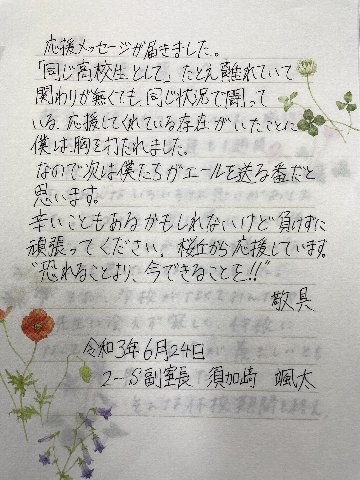 応援メッセージが届きました。
「同じ高校生として」たとえ離れていて
関わりが無くても、同じ状況で闘って
いる、応援してくれている存在がいたことに
僕は胸を打たれました。
なので次は僕たちがエールを送る番だと
思います。
辛いこともあるかもしれないけど負けずに
頑張ってください。桜丘から応援しています。
"恐れることより、今できることを!!"
敬具
令和3年6月24日
2-S副室長 須加崎 颯太